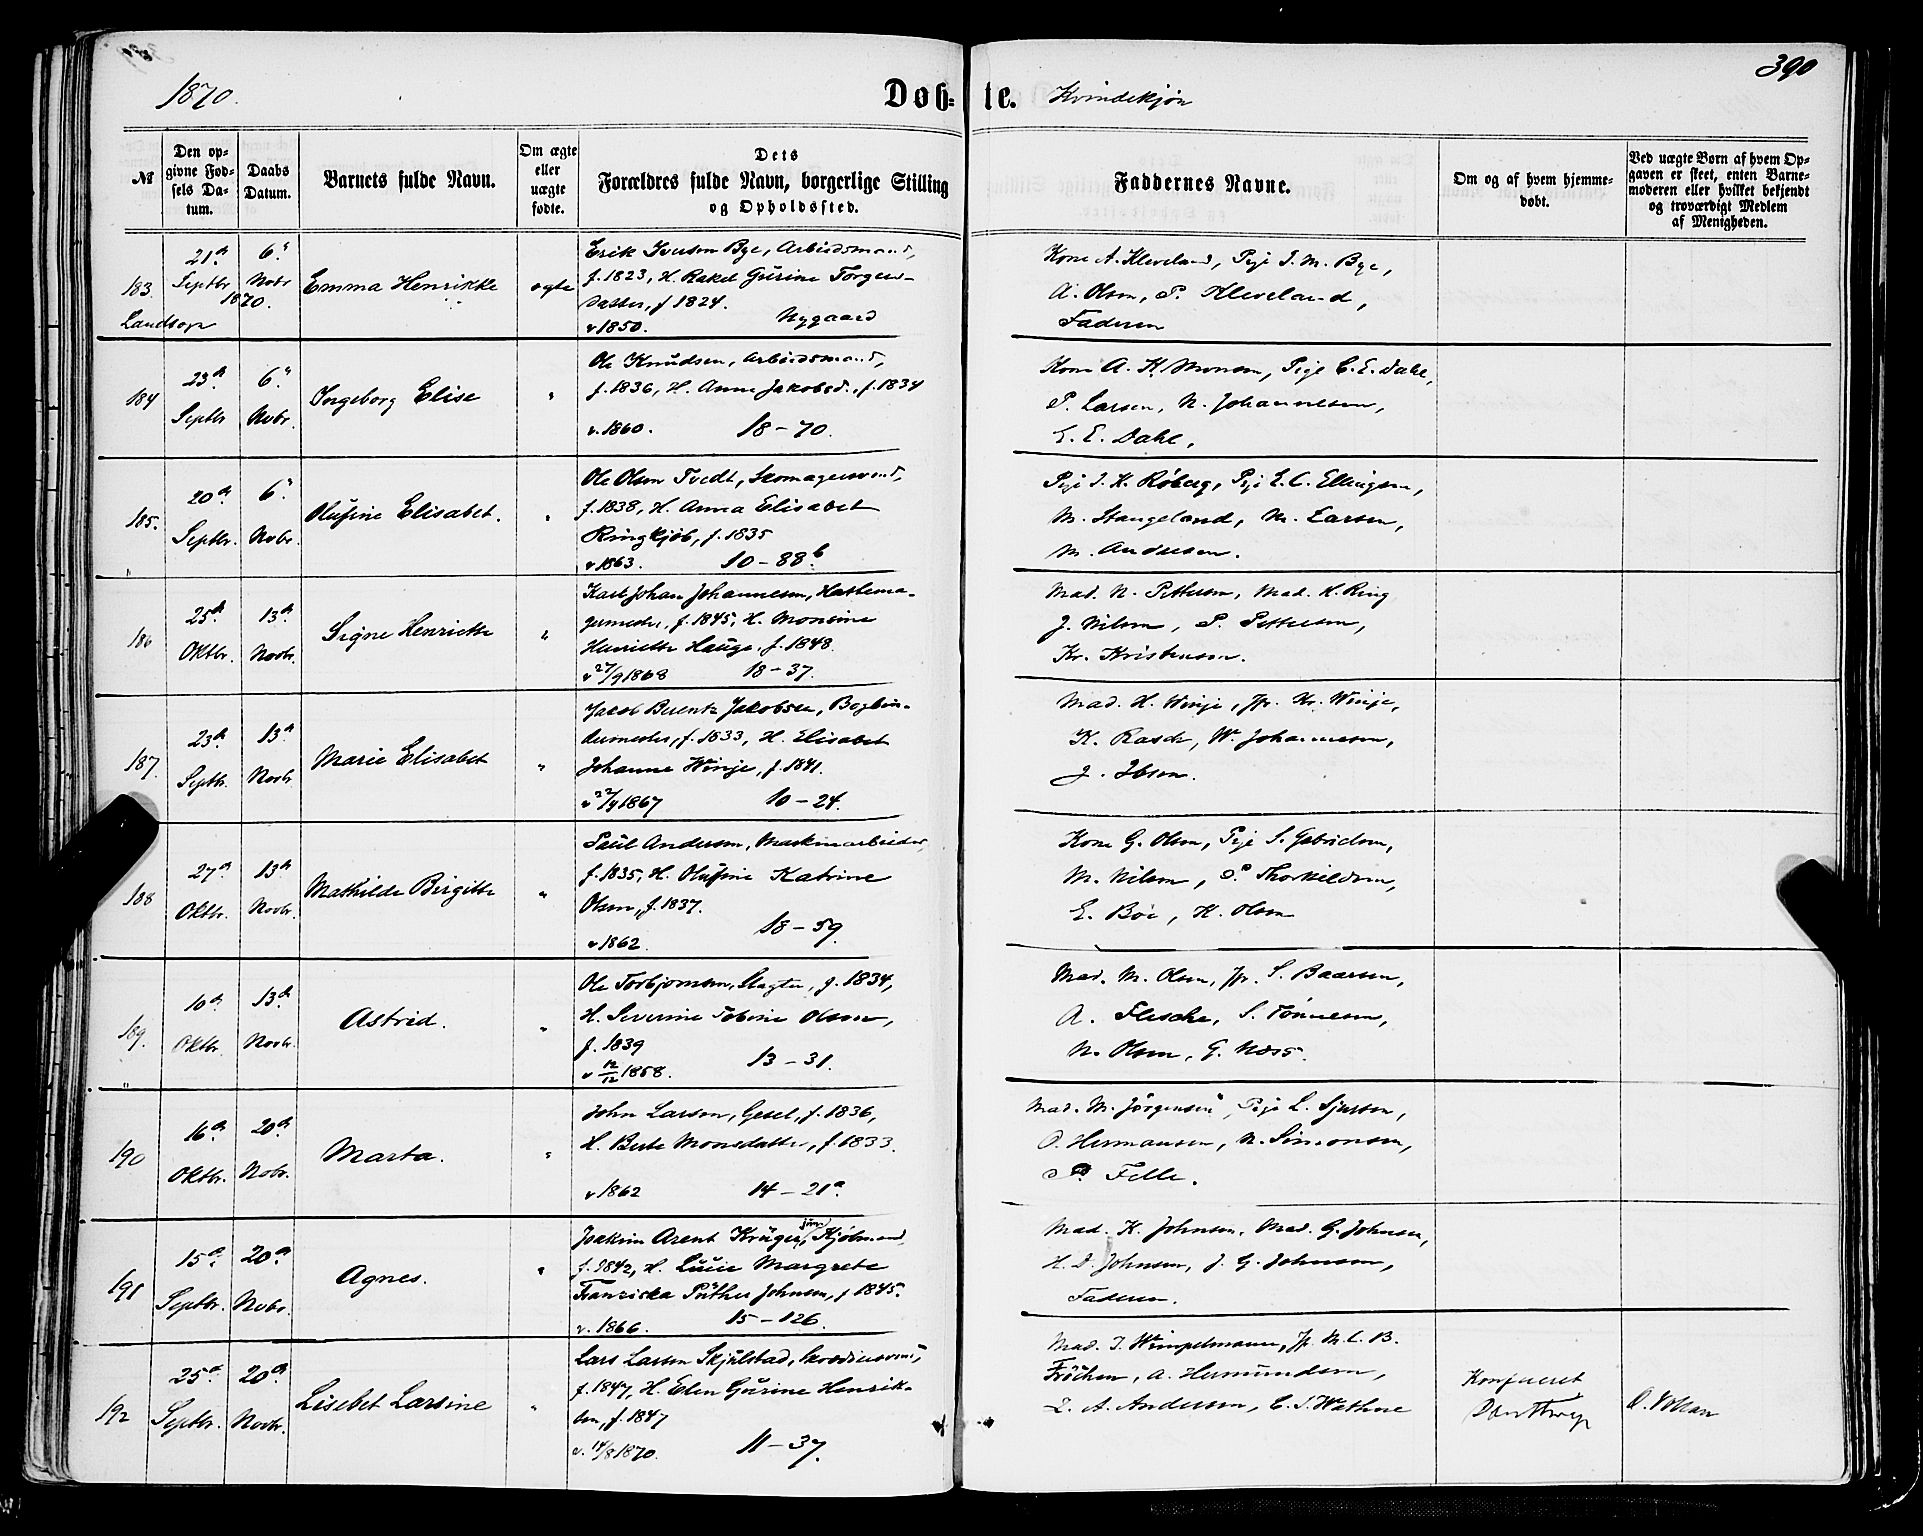 390
1870.
Døb-te. Kvindekjøn
№
Den opgivne Fødsels Datum.
Daabs Datum.
Barnets fulde Navn.
Om ægte eller uægte fødte.
Dets Forældres fulde Navn, borgerlige Stilling og Opholdssted.
Faddernes Navne.
Om og af hvem hjemmedøbt.
Ved uægte Børn af hvem Opgaven er skeet, enten Barnemoderen eller hvilket bekjendt og troværdigt Medlem af Menigheden.
183.
Landsogn
21de Septbr
6te Nobr
1870.
Emma Henrikke
ægte
Erik Iverson Bye, Arbeidsmand,
f. 1823, H. Rakel Gurine Torgers-
datter, f 1824.
v 1850. Nygaard
Kone A. Kleveland, Pige I. M. Bye,
A. Olsen, P. Kleveland,
Faderen
184
23de Septbr
6te Nobr.
Ingeborg Elise
"
Ole Knudsen, Arbeidsmand,
f. 1836, H. Anne Jakobsd., f. 1834
v. 1860. 18-70.
Kone A. K. Monsen, Pige C. E. Dahl,
P. Larsen, N. Johannesen,
E. E. Dahl,
185.
20de Septbr.
6te Nobr.
Olufine Elisabet.
"
Ole Olsen Tvedt, Skomagersvend,
f. 1838, H. Anna Elisabet
Ringkjøb, f. 1835
v 1863. 10-88b
Pige I. K. Røberg, Pige E. C. Ellingsen,
M. Stangeland, M. Larsen,
M. Andresen.
186
25de Oktbr.
13de Novbr.
Signe Henriette
"
Karl Johan Johannesen, Hattema-
germester, f. 1845, H. Monsine
Henriette Hauge, f. 1848
v 27/9 1868 18-37.
Mad. N. Pettersen, Mad. K. Ring
J. Nilsen, P. Pettersen,
Kr. Kristensen.
187.
23de Septbr.
13de Novbr
Marie Elisabet
"
Jakob Berentz Jakobsen, Bogbin-
dermester, f. 1833, H. Elisabet
Johanne Winje, f. 1841.
v 22/4 1867 10-24.
Mad. H. Winje, Jfr. Kr. Winje,
K. Rasch, W. Johannesen,
J. Ibsen.
188
27de Oktbr.
13de Novbr.
Mathilde Birgitte
"
Paul Andersen, Maskinarbeider,
f. 1835, H. Olufine Katrine
Olsen, f. 1837.
v 1862. 18-59.
Kone G. Olsen, Pige S. Gabrielsen,
M. Nilsen, P. Thorkildsen,
E. Bøe, K. Olsen
189.
10de Oktbr.
13de Novbr.
Astrid.
"
Ole Torbjornsen, Slagter, f. 1834,
H. Severine Tobine Olsen,
f. 1839
v 12/12 1858. 13-31.
Mad. M. Olsen, Jfr. S. Baarsen,
A. Flesche, S. Tønnesen,
N. Olsen, G. Næss.
190
16de Oktbr.
20de Nobr.
Marta.
"
John Larsen, Gesel, f. 1836,
H. Berte Monsdatter, f. 1833.
v 1862 14-21a.
Mad. M. Jörgensen, Pige L. Sjursen,
O. Hermansen, N. Simonsen,
P. Felle.
191
15de Septbr.
20de Nobr.
Agnes.
"
Joakim Arent Krüger jun, Kjøbmand,
f. 1842, H. Lucie Margrete
Franziska Püther Johnsen, f 1845.
v. 1866. 15-126.
Mad. K. Johnsen, Mad. G. Johnsen,
H. D. Johnsen, J. G. Johnsen,
Faderen.
192
25de Septbr.
20de Novbr.
Lisebet Larsine
"
Lars Larsen Skjulstad, Skrædersvend,
f. 1847, H. Elen Gurine Henrik-
sen, f. 1847
v. 14/8 1870. 11-37.
Mad. I. Wimpelmann, Jfr. M. C. B.
Fröchen, A. Hermundsen,
L. A. Andersen, C. I. Wathne